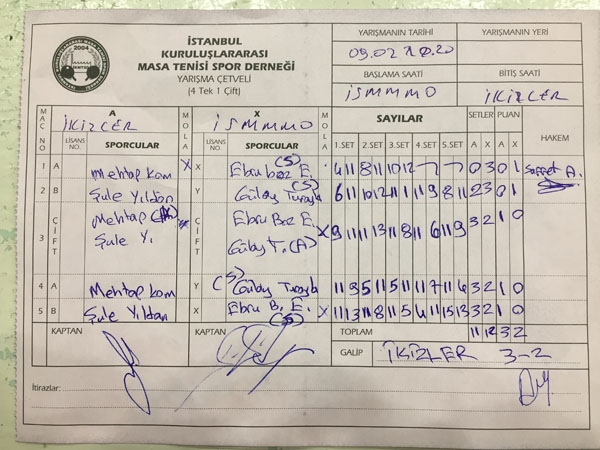 İSTANBUL
KURULUŞLARARASI
MASA TENİSİ SPOR DERNEĞİ
YARIŞMA ÇETVELİ
(4 Tek 1 Çift)
2004
YARIŞMANIN TARİHİ YARIŞMANIN YERİ
BAŞLAMA SAATİ BİTİŞ SAATİ
İSMMMO İKİZLER
MAÇ NO A MOLA X MOLA SAYILAR SETLER PUAN HAKEM
İKİZLER İSMMMO
LİSANS NO. SPORCULAR LİSANS NO. SPORCULAR 1.SET 2.SET 3.SET 4.SET 5.SET A X A X
1 A Mehtap Kom X X Ebru Boz E. (S) 4 11 8 11 10 12 0 3 0 1
2 B Şule Yıldan Y Gülay (S) 6 11 10 12 11 9 8 11 2 3 0 1
3 ÇİFT Mehtap Ebru Boz E. X 9 11 11 13 11 8 11 6 11 9 3 2 1 0
Şule Y. Gülay T. (A)
4 A Mehtap Kom Y (S) Gülay 11 9 5 11 5 11 11 7 11 6 3 2 1 0
5 B Şule Yıldan X Ebru B. E. (S) X 11 13 11 8 11 5 4 11 15 13 3 2 1 0
KAPTAN KAPTAN TOPLAM 11 12 3 2
GALİP İKİZLER 3-2
İtirazlar: